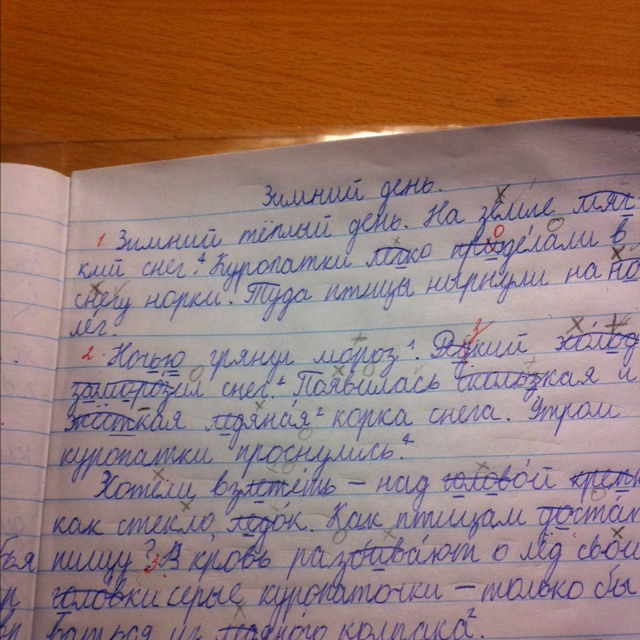 Зимний день.
1 Зимний тёплый день. На земле мяг-
кий снег.⁴ Куропатки легко проделали в
снегу норки. Туда птицы нырнули на но
лег.
2. Ночью грянул мороз¹. холод
заморозил снег.⁴ Появилась скользкая и
жёсткая ледяная² корка снега. Утром
куропатки проснулись.⁴
Хотели взлететь – над головой креп
как стекло, ледок. Как птицам достат
пищу? 3. В кровь разбивают о лёд свои
головки серые куропаточки – только бы
из ледяного колпака².